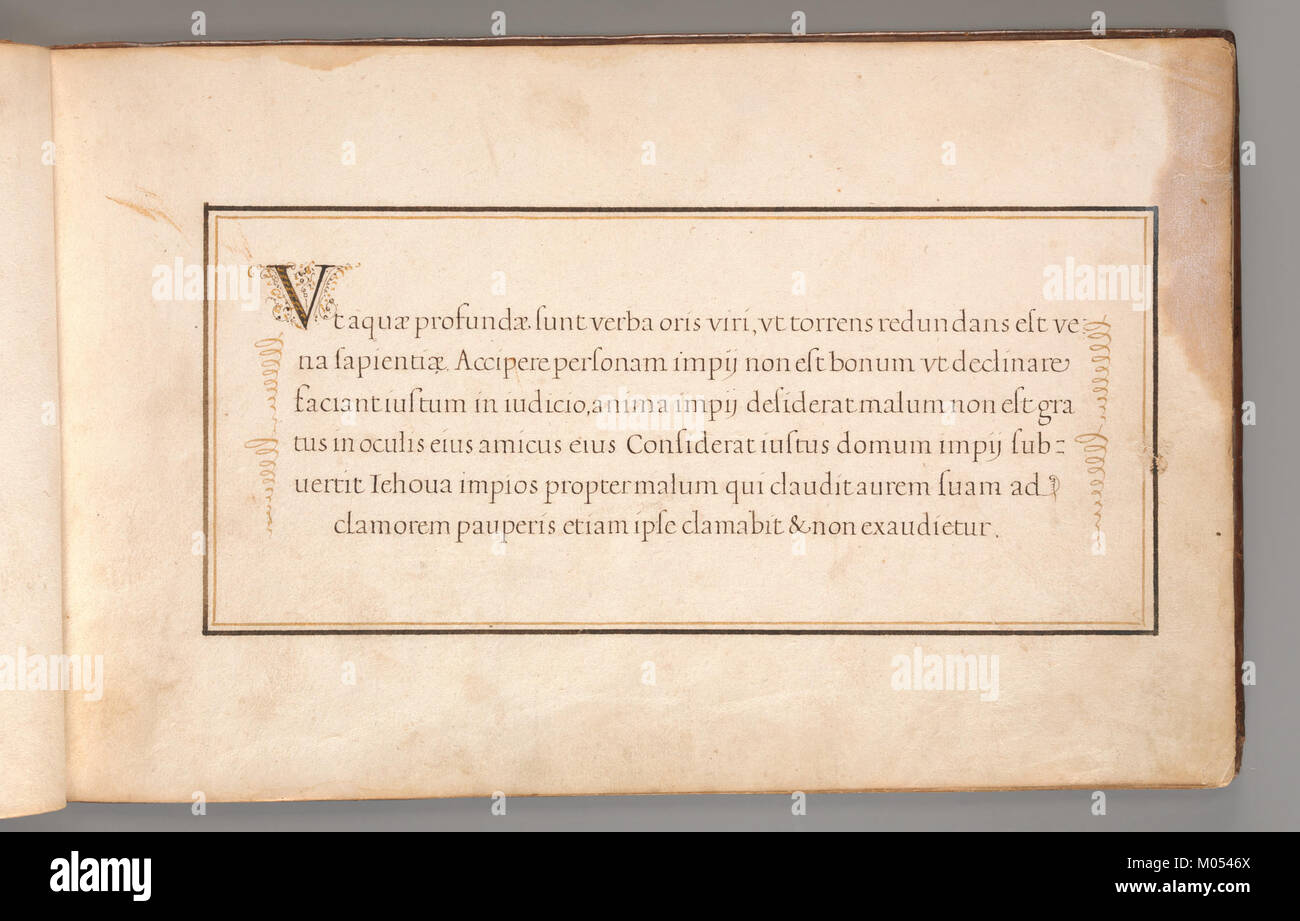 Vt aquæ profundæ ſunt verba oris viri, vt torrens redundans eſt ve:
na ſapientiæ. Accipere perſonam impij non eſt bonum vt declinare
faciant iuſtum in iudicio, anima impij deſiderat malum non eſt gra
tus in oculis eius amicus eius Conſiderat iuſtus domum impij ſub:
uertit Iehoua impios propter malum qui claudit aurem ſuam ad
clamorem pauperis etiam ipſe clamabit & non exaudietur.
alamy
alamy
Image ID: M0546X
www.alamy.com